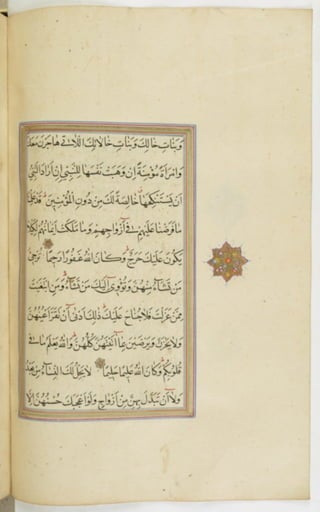 وَبَنَاتِ خَالِكَ وَبَنَاتِ خَالَاتِكَ اللَّاتِي هَاجَرْنَ مَعَكَ
وَامْرَأَةً مُؤْمِنَةً إِنْ وَهَبَتْ نَفْسَهَا لِلنَّبِيِّ إِنْ أَرَادَ النَّبِيُّ
أَنْ يَسْتَنْكِحَهَا خَالِصَةً لَكَ مِنْ دُونِ الْمُؤْمِنِينَ قَدْ عَلِمْنَا
مَا فَرَضْنَا عَلَيْهِمْ فِي أَزْوَاجِهِمْ وَمَا مَلَكَتْ أَيْمَانُهُمْ لِكَيْلَا
يَكُونَ عَلَيْكَ حَرَجٌ وَكَانَ اللَّهُ غَفُورًا رَحِيمًا تُرْجِي
مَنْ تَشَاءُ مِنْهُنَّ وَتُؤْوِي إِلَيْكَ مَنْ تَشَاءُ وَمَنِ ابْتَغَيْتَ
مِمَّنْ عَزَلْتَ فَلَا جُنَاحَ عَلَيْكَ ذَلِكَ أَدْنَى أَنْ تَقَرَّ أَعْيُنُهُنَّ
وَلَا يَحْزَنَّ وَيَرْضَيْنَ بِمَا آتَيْتَهُنَّ كُلُّهُنَّ وَاللَّهُ يَعْلَمُ مَا فِي
قُلُوبِكُمْ وَكَانَ اللَّهُ عَلِيمًا حَلِيمًا لَا يَحِلُّ لَكَ النِّسَاءُ مِنْ بَعْدُ
وَلَا أَنْ تَبَدَّلَ بِهِنَّ مِنْ أَزْوَاجٍ وَلَوْ أَعْجَبَكَ حُسْنُهُنَّ إِلَّا